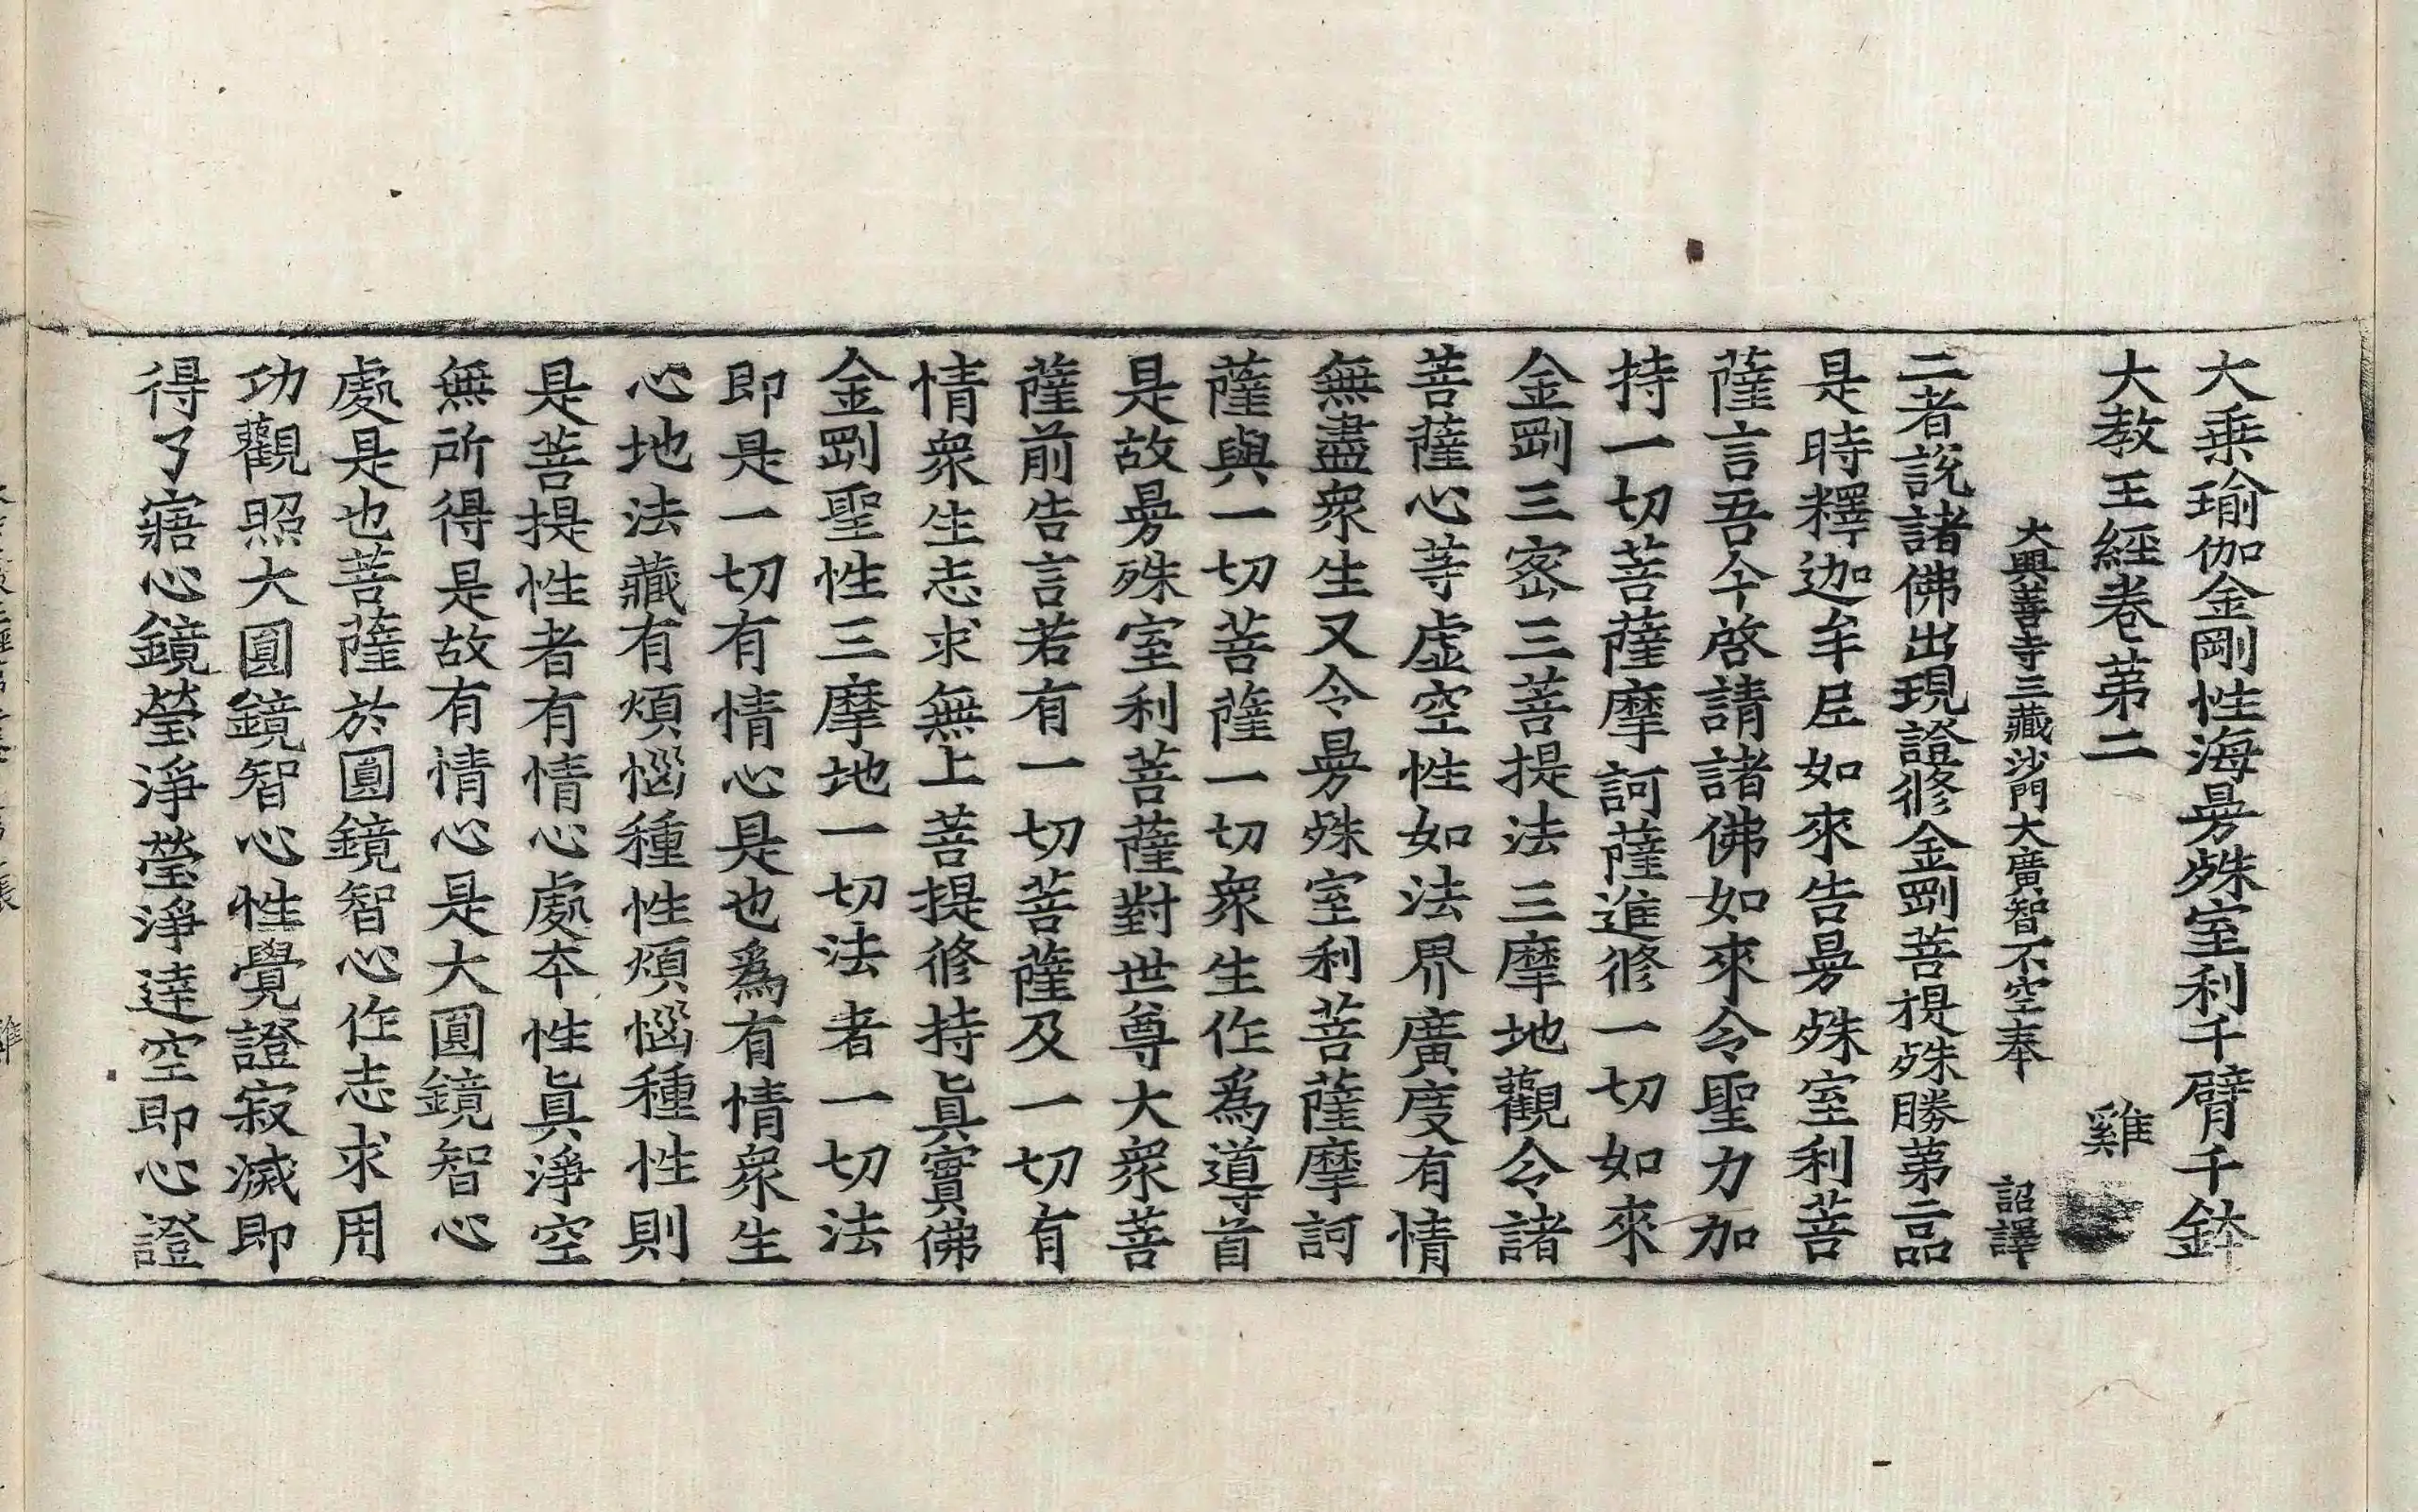 大乗瑜伽金剛性海曼殊室利千臂千鉢
大教王經卷苐二　雞
大興善寺三藏沙門大廣智不空奉　詔譯
二者說諸佛出現證修金剛菩提殊勝苐二品
是時釋迦牟尼如來告曼殊室利菩
薩言吾今啓請諸佛如來令聖力加
持一切菩薩摩訶薩進修一切如來
金剛三密三菩提法三摩地觀令諸
菩薩心等虛空性如法界廣度有情
無盡衆生又令曼殊室利菩薩摩訶
薩與一切菩薩一切衆生作爲導首
是故曼殊室利菩薩對世尊大衆菩
薩前告言若有一切菩薩及一切有
情衆生志求無上菩提修持眞實佛
金剛聖性三摩地一切法者一切法
即是一切有情心是也爲有情衆生
心地法藏有煩惱種性煩惱種性則
是菩提性者有情心處本性眞淨空
無所得是故有情心是大圓鏡智心
處是也菩薩於圓鏡智心作志求用
功觀照大圓鏡智心性覺證寂滅即
得了寤心鏡瑩淨瑩淨達空即心證